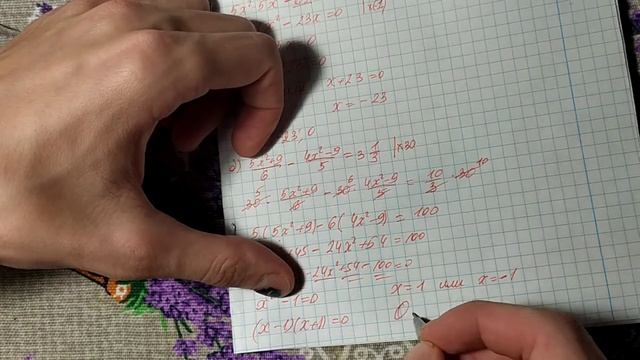 5x² · 5x²
x² - 23x = 0 | ×(-1)
= 0
= 0
x + 23 = 0
x = -23
23; 0
д) (5x²+9)/6 - (4x²-9)/5 = 3 1/3 | ×30
30 · (5x²+9)/6 - 30 · (4x²-9)/5 = 10/3 · 30
5(5x²+9) - 6(4x²-9) = 100
+45 - 24x² + 54 = 100
- 24x² + 54 - 100 = 0
x² - 1 = 0
x = 1 или x = -1
(x-1)(x+1) = 0
О